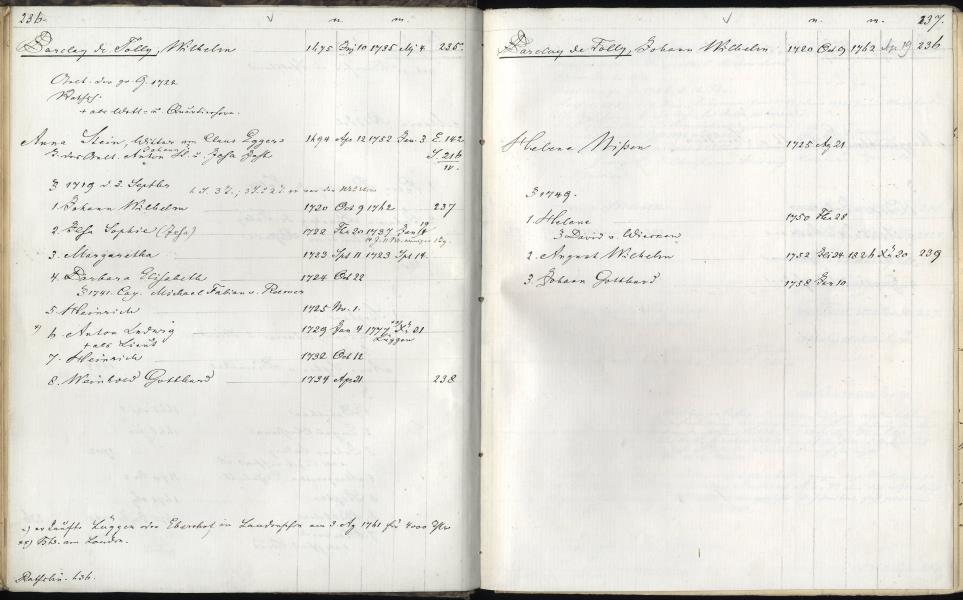 236.
n. m.
Barclay de Tolly, Wilhelm 1675 10 1735 My 4 235.
Aelt. der gr G. 1722
Rathsh.
+ als Wett- u. Quartierherr.
Anna Stein, Wittwe von Claus Eggers 1694 Apr 12 1752 Jan. 3 E. 142
Johanni
T. des Aelt. Anton St. u. S. 216
IV.
1719 d. 3. Septbr
1. Johann Wilhelm 1720 Oct 9 1762 237
2. Elsa Sophie 1722 20 1737 Jan
3. Margaretha 1723 Spt 11 1723 Spt 14
4. Barbara Elisabeth 1724 Oct 22
1741. Cap. Michael Fabian v. Roemer
5. Heinrich 1725 Nv. 1.
6. Anton Ludwig 1729 Jan 4 1777 Xr 21
+ als Lieut Lüggen
7. Heinrich 1732 Oct 12
8. Weinhold Gotthard 1734 Ap 21 238
x) er kaufte Lüggen oder Eberhof in am 3 Ag 1761 für 4000
xx) Bhs. am Landen.
Rathslin. 636.
n. m. 237.
Barclay de Tolly, Johann Wilhelm 1720 Oct 9 1762 Ap 19 236
Helena Nißen 1725 Ag 21
1749.
1. Helena 1750 28
David v. Wiecken
2. August Wilhelm 1752 24 1826 Xr 20 239
3. Johann Gotthard 1758 Jan 10